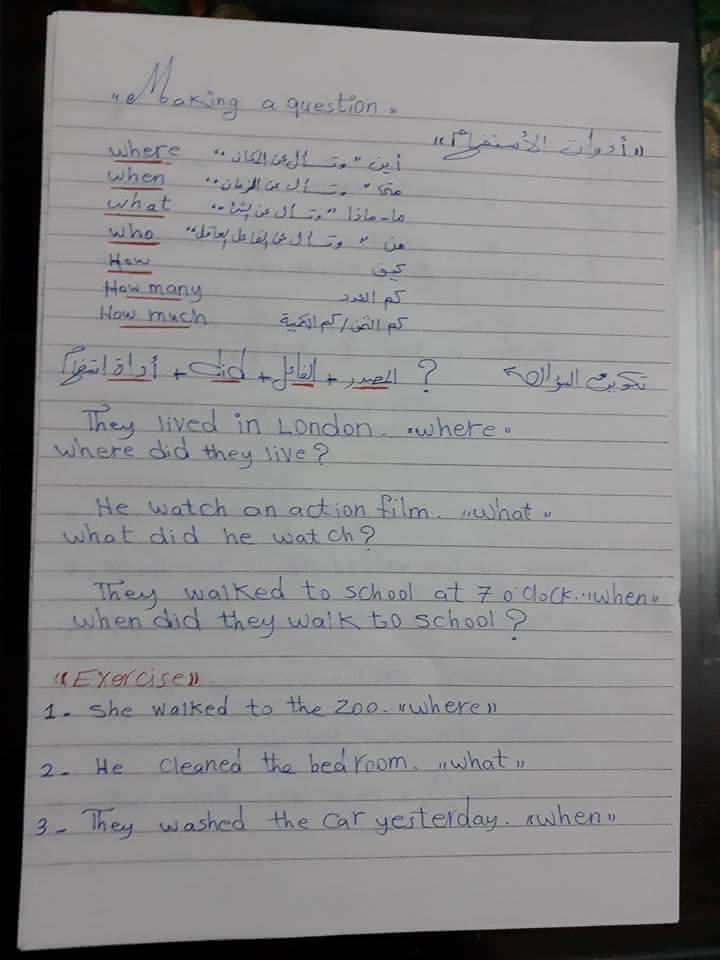 "Making a question"
"أدوات الأستفهام"
where أين "وتسأل عن المكان"
when متى "وتسأل عن الزمان"
what ما-ماذا "وتسأل عن الشئ"
who من "وتسأل عن الفاعل العاقل"
How كيف
How many كم العدد
How much كم الثمن/كم الكمية
تكوين السؤال
أداة استفهام + did + الفاعل + المصدر ?
They lived in London. "where"
where did they live?
He watch an action film. "what"
what did he watch?
They walked to school at 7 o'clock. "when"
when did they walk to school?
"Exercise"
1- She walked to the zoo. "where"
2- He cleaned the bedroom. "what"
3- They washed the car yesterday. "when"